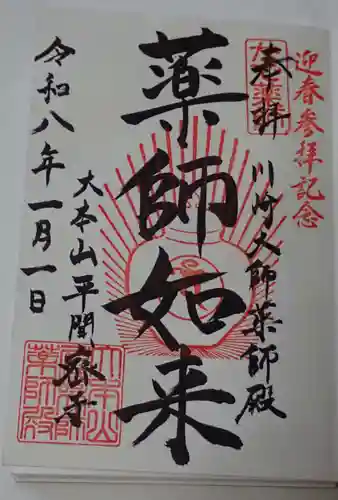 迎春参拝記念
奉拝
川崎大師薬師殿
薬師如来
大本山平間寺
令和八年一月一日